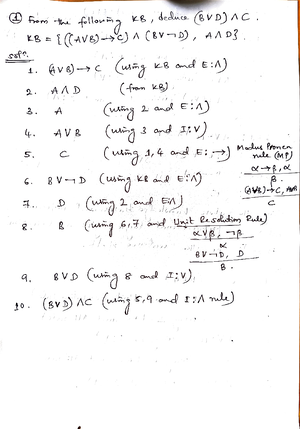 ① From the following KB, deduce (B∨D)∧C.
KB = {((A∨B)→C) ∧ (B∨¬D), A∧D}.
Solⁿ.
1. (A∨B)→C (using KB and E:∧)
2. A∧D (from KB)
3. A (using 2 and E:∧)
4. A∨B (using 3 and I:∨)
5. C (using 1,4 and E:→) Modus Ponen
rule (MP)
α→β, α
β
(A∨B)→C, A∨B
C
6. B∨¬D (using KB and E:∧)
7. D (using 2 and E:∧)
8. B (using 6,7 and Unit Resolution Rule)
α∨β, ¬β
α
B∨¬D, D
B.
9. B∨D (using 8 and I:∨)
10. (B∨D)∧C (using 5,9 and I:∧ rule)